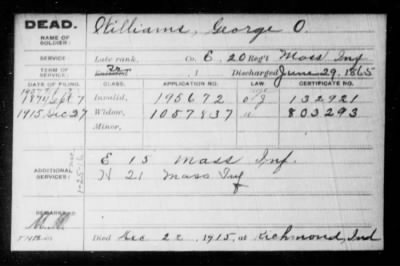 DEAD. Williams, George O.
NAME OF SOLDIER:
SERVICE Late rank, Co. E, 20 Reg't Mass Inf
TERM OF SERVICE Discharged June 29, 1865
DATE OF FILING. CLASS. APPLICATION NO. LAW CERTIFICATE NO.
Invalid, 195672 132921
1915, Dec 27 Widow, 1057837 803293
Minor,
ADDITIONAL SERVICES: E 15 Mass Inf.
H 21 Mass Inf
REMARKS:
Died Dec 22, 1915, at Richmond, Ind